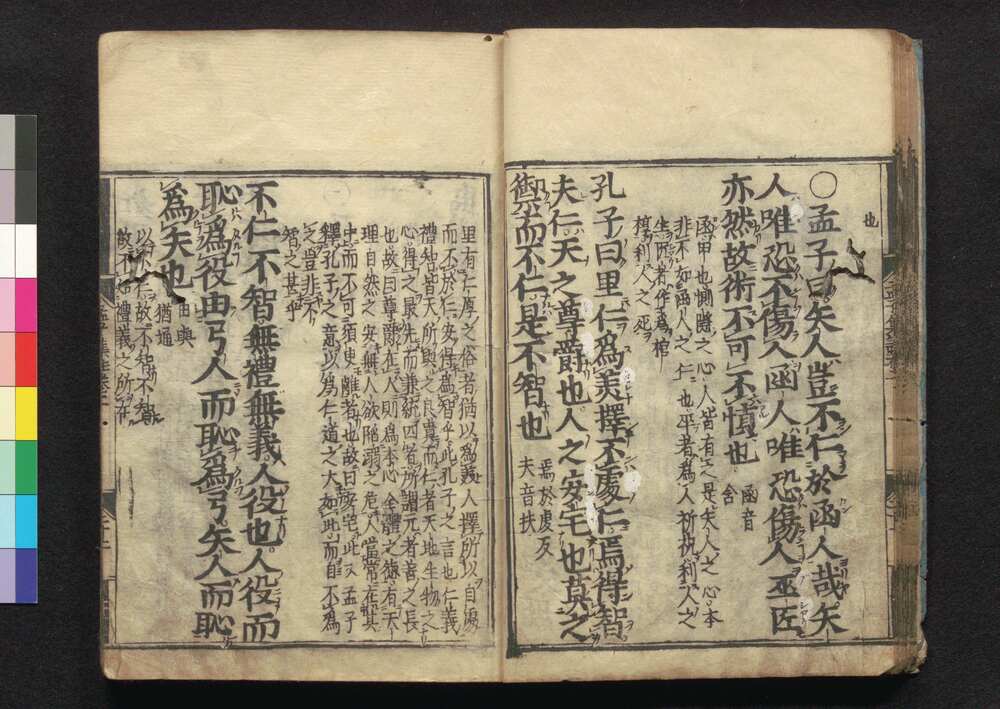 也
○孟子曰矢人豈不仁於函人哉矢
人唯恐不傷人函人唯恐傷人巫匠
亦然故術不可不慎也
函音
含
函甲也惻隱之心人皆有之是矢人之心本
非不如函人之仁也巫者為人祈祝利人之
生匠者作為棺
椁利人之死
孔子曰里仁為美擇不處仁焉得智
夫仁天之尊爵也人之安宅也莫之
禦而不仁是不智也
焉於虔反
夫音扶
里有仁厚之俗者猶以為美人擇所以自處
而不於仁安得為智乎此孔子之言也仁義
禮智皆天所與之良貴而仁者天地生物之
心得之最先而兼統四者所謂元者善之長
也故曰尊爵在人則為本心全體之德有天
理自然之安無人欲陷溺之危人當常在其
中而不可須臾離者也故曰安宅此又孟子
釋孔子之意以為仁道之大如此而自不為
之豈非不
智之甚乎
不仁不智無禮無義人役也人役而
恥為役由弓人而恥為弓矢人而恥
為矢也
由與
猶通
以不仁故不智不智
故不知禮義之所在